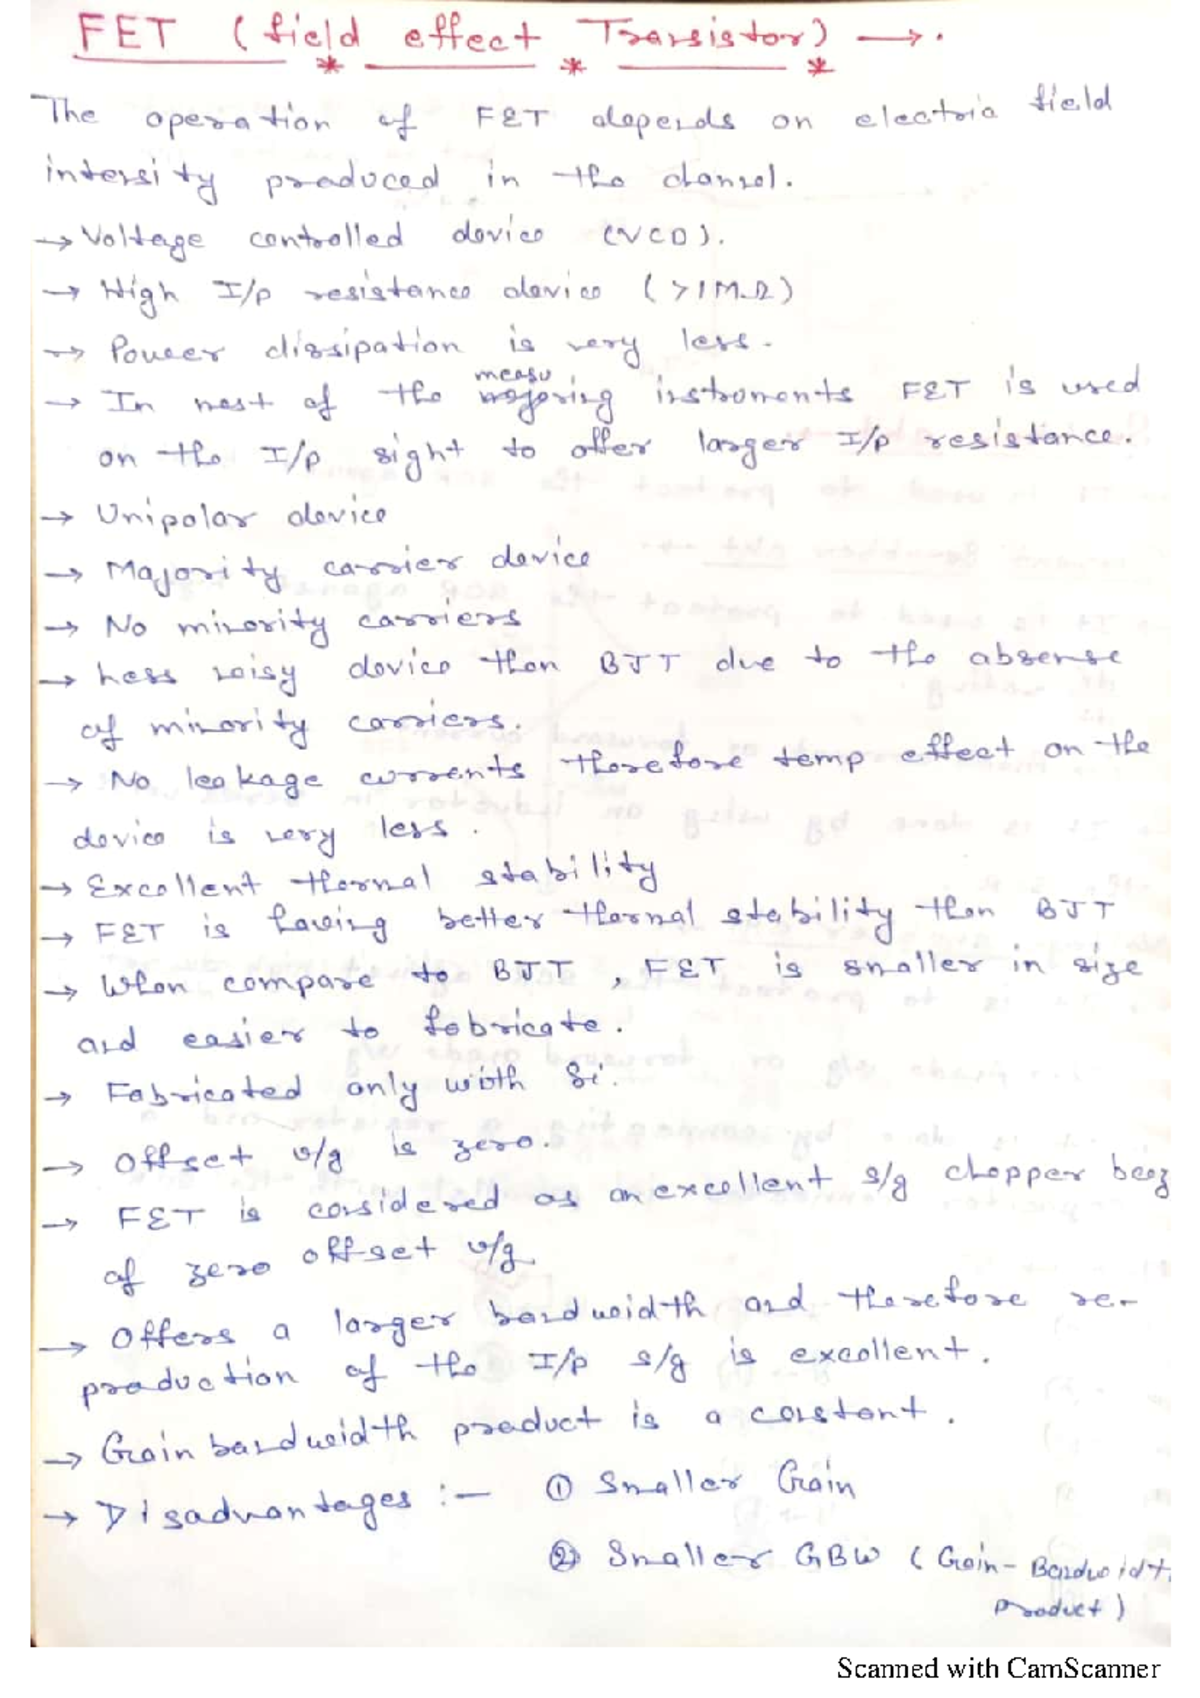 FET (field effect Transistor) →.
The operation of FET depends on electric field
intensity produced in the channel.
→ Voltage controlled device (VCD).
→ High I/p resistance device (>1MΩ)
→ Power dissipation is very less.
→ In most of the measuring instruments FET is used
on the I/p sight to offer larger I/p resistance.
→ Unipolar device
→ Majority carrier device
→ No minority carriers
→ Less noisy device than BJT due to the absense
of minority carriers.
→ No leakage currents therefore temp effect on the
device is very less.
→ Excellent thermal stability
→ FET is having better thermal stability than BJT
→ When compare to BJT, FET is smaller in size
and easier to fabricate.
→ Fabricated only with Si.
→ Offset v/g is zero.
→ FET is considered as an excellent s/g chopper
of zero offset v/g.
→ Offers a larger bandwidth and therefore re-
production of the I/p s/g is excellent.
→ Gain bandwidth product is a constant.
→ Disadvantages :- ① Smaller Gain
② Smaller GBW (Gain-Bandwidt
Product)
Scanned with CamScanner